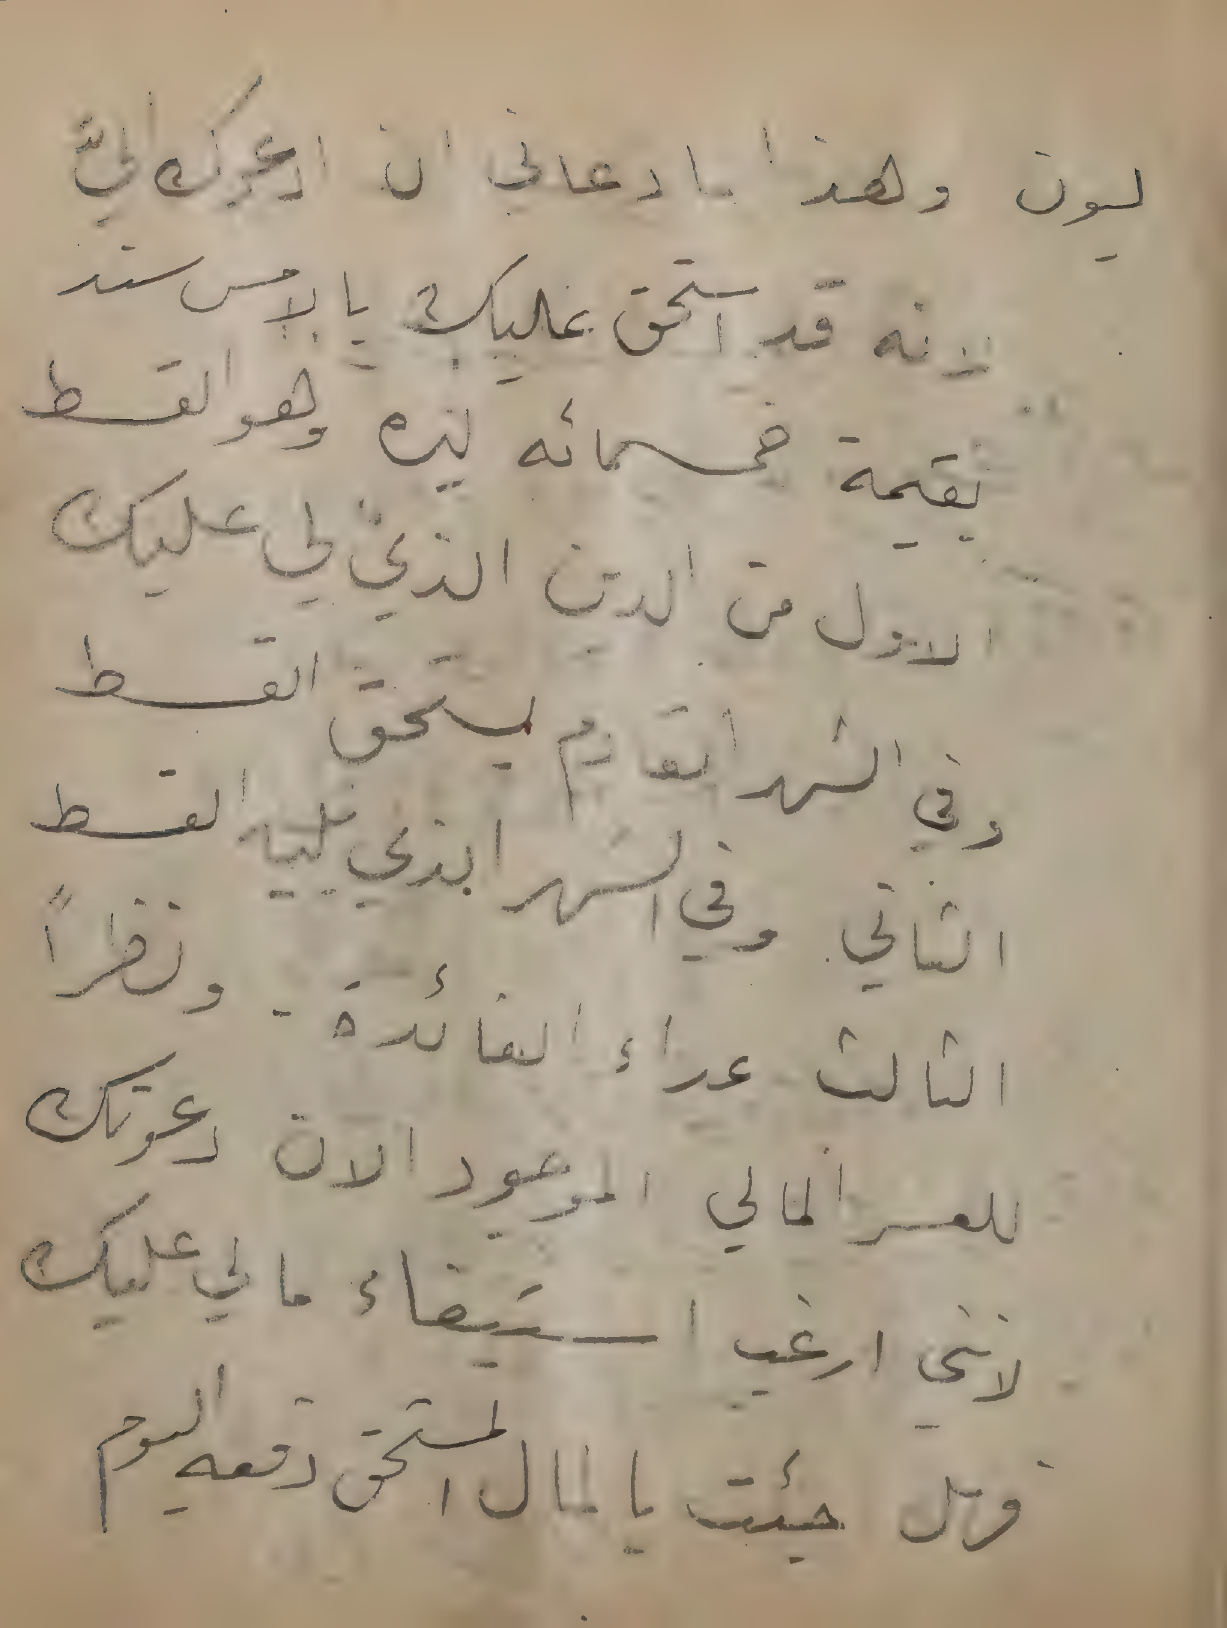 ليون وهذا ما دعاني ان ادعوك اليَّ
لانه قد استحق عليك بالامس سند
بقيمة خمسمائه ليره وهو القسط
الاول من الدين الذي لي عليك
وفي الشهر القادم يستحق القسط
الثاني وفي الشهر الذي يليه القسط
الثالث عداء الفائدة - ونظراً
للعسر المالي الموجود الان دعوتك
لانني ارغب استيفاء مالي عليك
فهل جئت بالمال المستحق دفعه اليوم